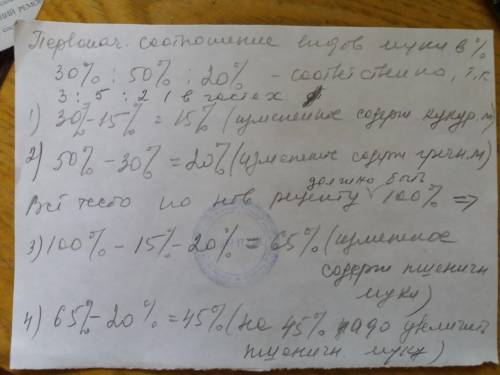 Первонач. соотношение видов муки в %
30% : 50% : 20% - соответственно, т.к.
3 : 5 : 2 в частях
1) 30% - 15% = 15% (измененное содерж кукур. м)
2) 50% - 30% = 20% (измененное содерж гречн. м)
должно быть
Всё тесто по нов рецепту 100% =>
3) 100% - 15% - 20% = 65% (измененное
содерж пшеничн
муки)
4) 65% - 20% = 45% (на 45% надо увеличить
пшеничн муку)